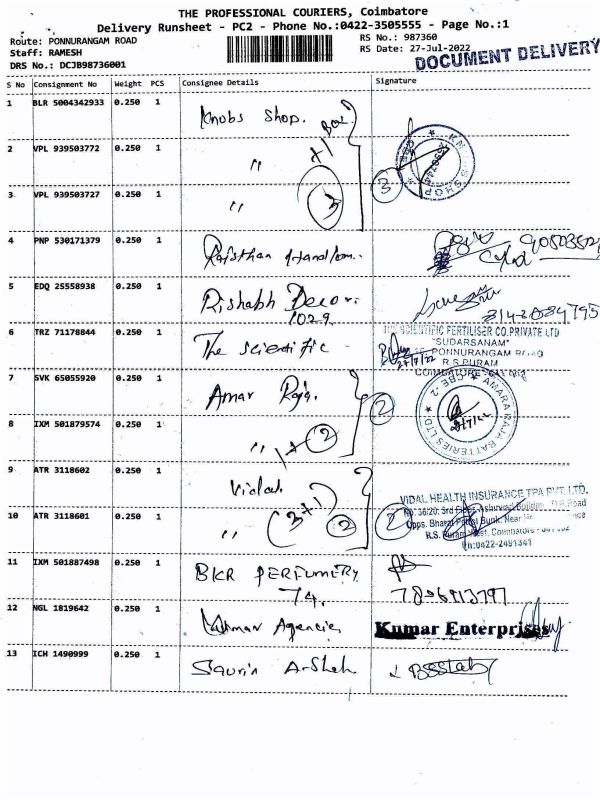 THE PROFESSIONAL COURIERS, Coimbatore
Delivery Runsheet - PC2 - Phone No.:0422-3505555 - Page No.:1
Route: PONNURANGAM ROAD
RS No.: 987360
Staff: RAMESH
RS Date: 27-Jul-2022
DRS No.: DCJB98736001
DOCUMENT DELIVERY
S No Consignment No Weight PCS Consignee Details Signature
1 BLR 5004342933 0.250 1 Knobs Shop.
+1 Box
2 VPL 939503772 0.250 1 "
3
3 VPL 939503727 0.250 1 " 3
4 PNP 530171379 0.250 1 Rajsthan Handloom.
5 EDQ 25558938 0.250 1 Rishabh Decor.
1029
6 TRZ 71178844 0.250 1 The Scientific
THE SCIENTIFIC FERTILISER CO.PRIVATE LTD
"SUDARSANAM"
PONNURANGAM ROAD
R S PURAM
27/7/22
7 SVK 65055920 0.250 1 Amar Raja. 2
AMARA RAJA BATTERIES LTD CBE-2
8 IXM 501879574 0.250 1 " 2
9 ATR 3118602 0.250 1 Vidal
VIDAL HEALTH INSURANCE TPA PVT. LTD.
10 ATR 3118601 0.250 1 " (3+1) 2 2
Ph:0422-2491341
11 IXM 501887498 0.250 1 BKR PERFUMERY
74.
12 NGL 1819642 0.250 1 Kumar Agencies Kumar Enterprises
13 ICH 1490999 0.250 1 Saurin A-Shah